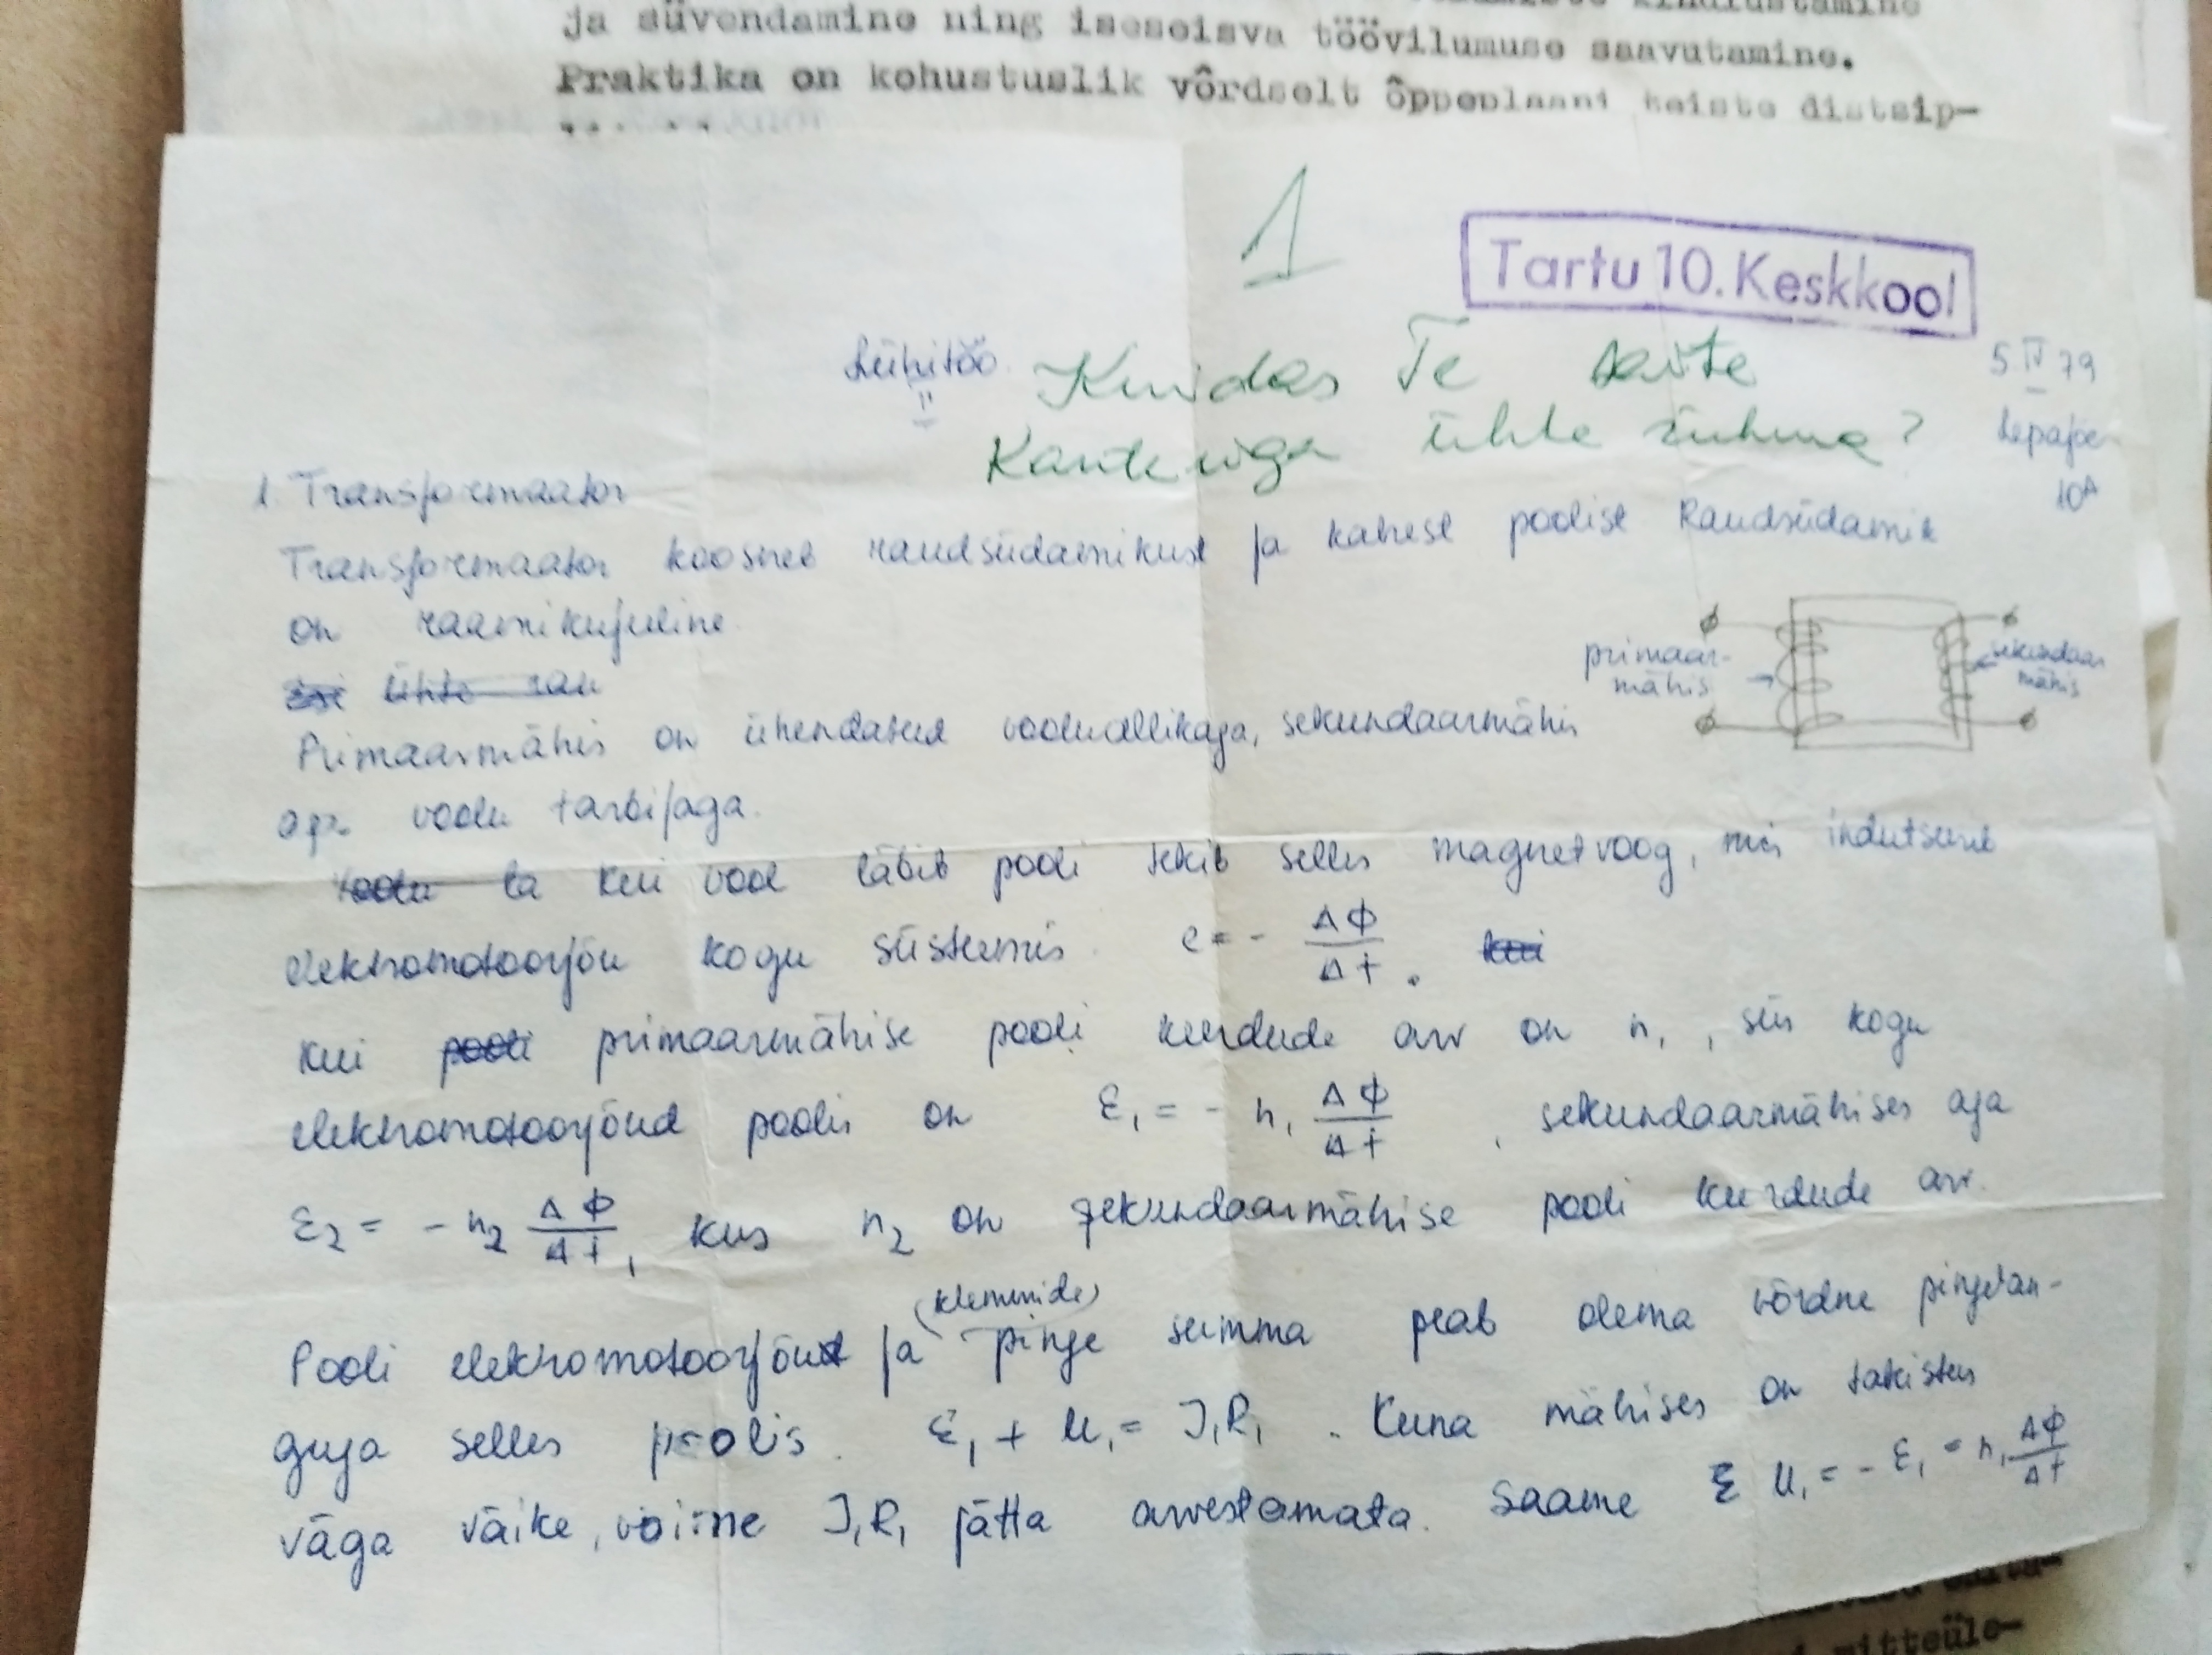 ja süvendamine ning iseseisva töövilumuse saavutamine.
Praktika on kohustuslik võrdselt õppeplaani teiste distsip-
1
Tartu 10. Keskkool
Lühitöö
II
Kuidas Te saite
ühte rühma?
5 IV 79
Lepajõe
10A
1. Transformaator
Transformaator koosneb raudsüdamikust ja kahest poolist. Raudsüdamik
on raamikujuline.
ühte
primaar-
mähis
sekundaar
mähis
Primaarmähis on ühendatud vooluallikaga, sekundaarmähis
aga voolu tarbijaga.
Voolu lä kui vool läbib pooli tekib selles magnetvoog, mis indutseerib
elektromotoorjõu kogu süsteemis. e = - ΔΦ/Δt. kui
kui pooli primaarmähise pooli keerdude arv on n₁, siis kogu
elektromotoorjõud poolis on ε₁ = - n₁ ΔΦ/Δt, sekundaarmähises aga
ε₂ = - n₂ ΔΦ/Δt, kus n₂ on sekundaarmähise pooli keerdude arv.
(klemmide)
Pooli elektromotoorjõu ja pinge summa peab olema võrdne pingelan-
guga selles poolis. ε₁ + U₁ = I₁R₁. Kuna mähises on takistus
väga väike, võime I₁R₁ jätta arvestamata. Saame ε U₁ = - ε₁ = n₁ ΔΦ/Δt
mitteüle-